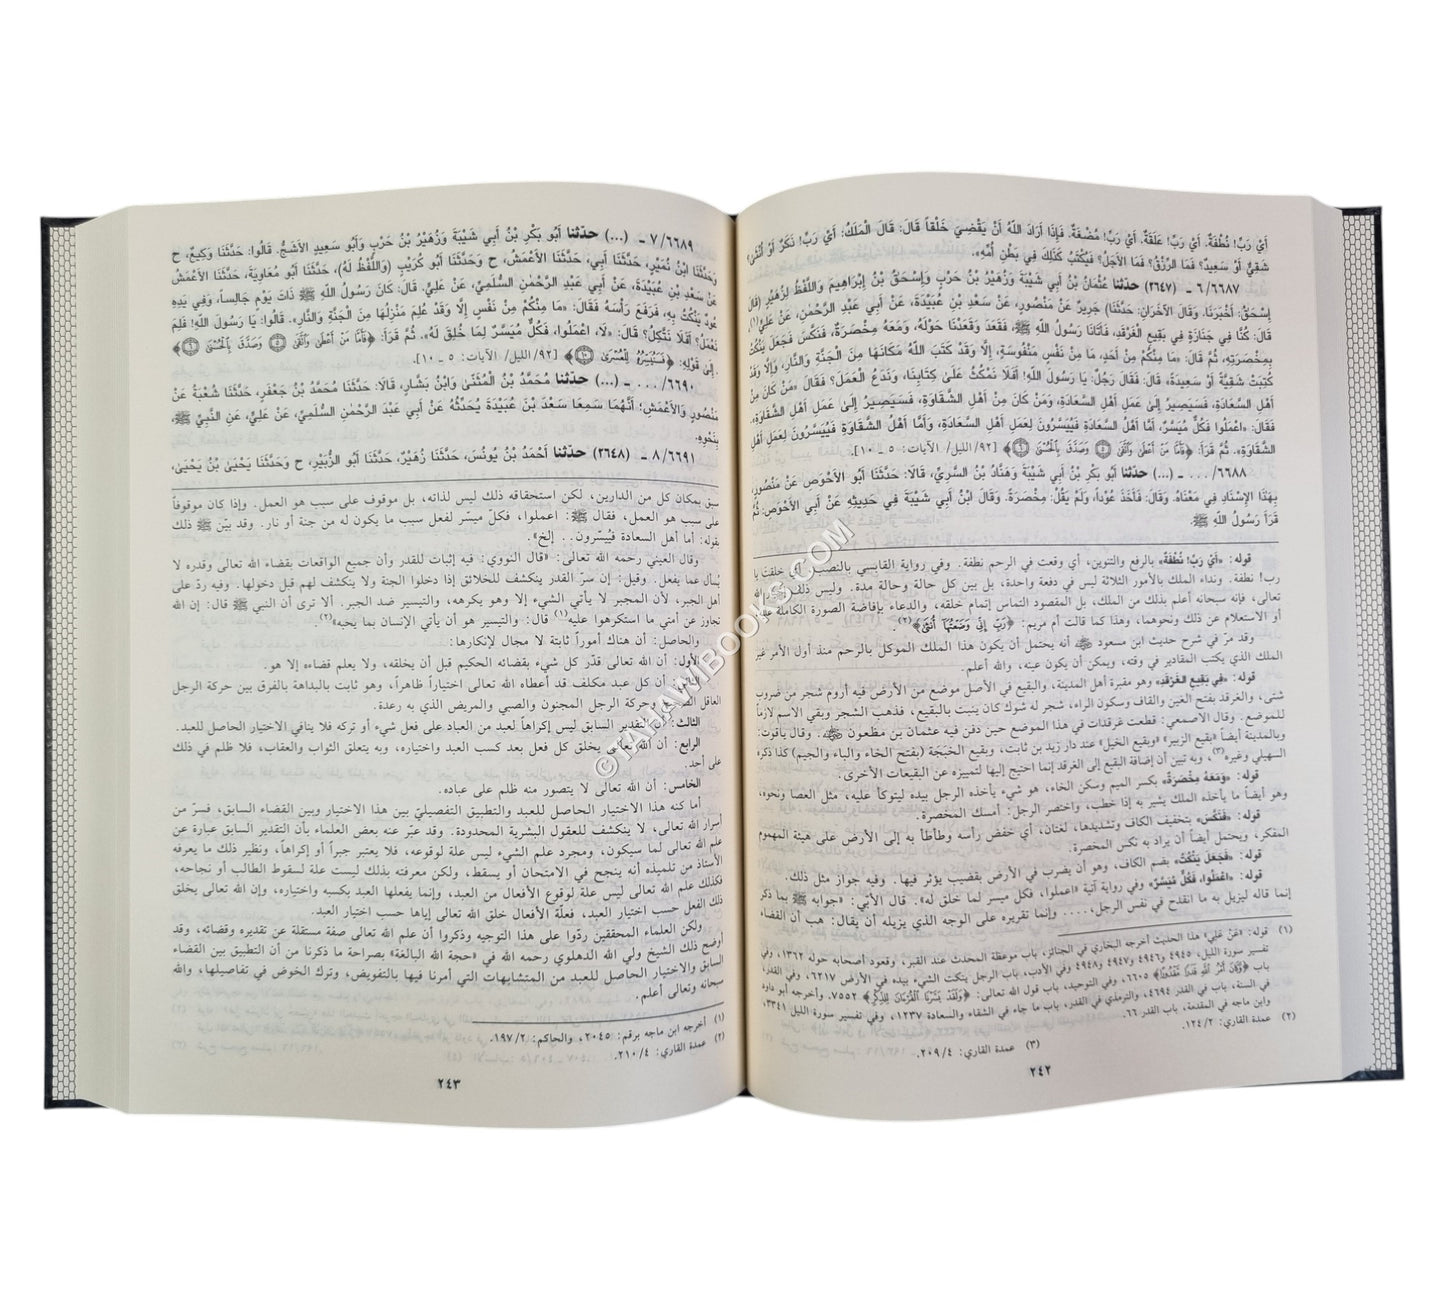 أَيْ رَبِّ! نُطْفَةٌ. أَيْ رَبِّ! عَلَقَةٌ. أَيْ رَبِّ! مُضْغَةٌ. فَإِذَا أَرَادَ اللَّهُ أَنْ يَقْضِيَ خَلْقاً قَالَ: قَالَ الْمَلَكُ: أَيْ رَبِّ! ذَكَرٌ أَوْ أُنْثَىٰ؟
شَقِيٌّ أَوْ سَعِيدٌ؟ فَمَا الرِّزْقُ؟ فَمَا الأَجَلُ؟ فَيُكْتَبُ كَذٰلِكَ فِي بَطْنِ أُمِّهِ».
٦٦٨٧/ ٦ - (٢٦٤٧) حدّثنا عُثْمَانُ بْنُ أَبِي شَيْبَةَ وَزُهَيْرُ بْنُ حَرْبٍ وَإِسْحَقُ بْنُ إِبْرَاهِيمَ وَاللَّفْظُ لِزُهَيْرٍ (قَالَ
إِسْحَقُ: أَخْبَرَنَا. وَقَالَ الآخَرَانِ: حَدَّثَنَا) جَرِيرٌ عَنْ مَنْصُورٍ، عَنْ سَعْدِ بْنِ عُبَيْدَةَ، عَنْ أَبِي عَبْدِ الرَّحْمٰنِ، عَنْ عَلِيٍّ(١)
قَالَ: كُنَّا فِي جَنَازَةٍ فِي بَقِيعِ الْغَرْقَدِ، فَأَتَانَا رَسُولُ اللَّهِ ﷺ، فَقَعَدَ وَقَعَدْنَا حَوْلَهُ، وَمَعَهُ مِخْصَرَةٌ، فَنَكَسَ فَجَعَلَ يَنْكُتُ
بِمِخْصَرَتِهِ، ثُمَّ قَالَ: «مَا مِنْكُمْ مِنْ أَحَدٍ، مَا مِنْ نَفْسٍ مَنْفُوسَةٍ، إِلَّا وَقَدْ كَتَبَ اللَّهُ مَكَانَهَا مِنَ الْجَنَّةِ وَالنَّارِ، وَإِلَّا وَقَدْ
كُتِبَتْ شَقِيَّةً أَوْ سَعِيدَةً». قَالَ: فَقَالَ رَجُلٌ: يَا رَسُولَ اللَّهِ! أَفَلَا نَمْكُثُ عَلَىٰ كِتَابِنَا، وَنَدَعُ الْعَمَلَ؟ فَقَالَ «مَنْ كَانَ مِنْ
أَهْلِ السَّعَادَةِ، فَسَيَصِيرُ إِلَىٰ عَمَلِ أَهْلِ السَّعَادَةِ، وَمَنْ كَانَ مِنْ أَهْلِ الشَّقَاوَةِ، فَسَيَصِيرُ إِلَىٰ عَمَلِ أَهْلِ الشَّقَاوَةِ».
فَقَالَ: «اعْمَلُوا فَكُلٌّ مُيَسَّرٌ. أَمَّا أَهْلُ السَّعَادَةِ فَيُيَسَّرُونَ لِعَمَلِ أَهْلِ السَّعَادَةِ، وَأَمَّا أَهْلُ الشَّقَاوَةِ فَيُيَسَّرُونَ لِعَمَلِ أَهْلِ
الشَّقَاوَةِ». ثُمَّ قَرَأَ: ﴿فَأَمَّا مَنْ أَعْطَىٰ وَاتَّقَىٰ ۝ وَصَدَّقَ بِالْحُسْنَىٰ ۝﴾ [٩٢/ الليل/ الآيات: ٥ - ١٠].
٦٦٨٨/ . . . - (...) حدّثنا أَبُو بَكْرِ بْنُ أَبِي شَيْبَةَ وَهَنَّادُ بْنُ السَّرِيِّ. قَالَا: حَدَّثَنَا أَبُو الأَحْوَصِ عَنْ مَنْصُورٍ،
بِهٰذَا الإِسْنَادِ فِي مَعْنَاهُ. وَقَالَ: فَأَخَذَ عُوداً، وَلَمْ يَقُلْ: مِخْصَرَةً. وَقَالَ ابْنُ أَبِي شَيْبَةَ فِي حَدِيثِهِ عَنْ أَبِي الأَحْوَصِ: ثُمَّ
قَرَأَ رَسُولُ اللَّهِ ﷺ.
قوله: «أي رَبِّ! نُطْفَةٌ» بالرفع والتنوين، أي وقعت في الرحم نطفة. وفي رواية القابسي بالنصب، أي خلقت يا
رب! نطفة. ونداء الملك بالأمور الثلاثة ليس في دفعة واحدة، بل بين كل حالة وحالة مدة. وليس ذلك الله
تعالى، فإنه سبحانه أعلم بذلك من الملك، بل المقصود التماس إتمام خلقه، والدعاء بإفاضة الصورة الكاملة عليه
أو الاستعلام عن ذلك ونحوهما، وهذا كما قالت أم مريم: ﴿رَبِّ إِنِّي وَضَعْتُهَا أُنْثَىٰ﴾(٢).
وقد مرّ في شرح حديث ابن مسعود رضي الله عنه أنه يحتمل أن يكون هذا الملك الموكل بالرحم منذ أول الأمر غير
الملك الذي يكتب المقادير في وقته، ويمكن أن يكون عينه، والله أعلم.
قوله: «فِي بَقِيعِ الغَرْقَدِ» وهو مقبرة أهل المدينة، والبقيع في الأصل موضع من الأرض فيه أروم شجر من ضروب
شتى، والغرقد بفتح الغين والقاف وسكون الراء، شجر له شوك كان ينبت بالبقيع، فذهب الشجر وبقي الاسم لازماً
للموضع. وقال الأصمعي: قطعت غرقدات في هذا الموضع حين دفن فيه عثمان بن مظعون رضي الله عنه. وقال ياقوت:
وبالمدينة أيضاً «بقيع الزبير» و«بقيع الخيل» عند دار زيد بن ثابت، وبقيع الخَبْجَبَة (بفتح الخاء والباء والجيم) كذا ذكره
السهيلي وغيره(٣)، وبه تبين أن إضافة البقيع إلى الغرقد إنما احتيج إليها لتمييزه عن البقيعات الأخرى.
قوله: «وَمَعَهُ مِخْصَرَةٌ» بكسر الميم وسكن الخاء، هو شيء يأخذه الرجل بيده ليتوكأ عليه، مثل العصا ونحوه،
وهو أيضاً ما يأخذه الملك يشير به إذا خطب، واختصر الرجل: أمسك المخصرة.
قوله: «فَنَكَسَ» بتخفيف الكاف وتشديدها، لغتان، أي خفض رأسه وطأطأ به إلى الأرض على هيئة المهموم
المفكر، ويحتمل أيضاً أن يراد به نكس المخصرة.
قوله: «فَجَعَلَ يَنْكُتُ» بضم الكاف، وهو أن يضرب في الأرض بقضيب يؤثر فيها. وفيه جواز مثل ذلك.
قوله: «اعْمَلُوا، فَكُلٌّ مُيَسَّرٌ» وفي رواية آتية «اعملوا، فكل ميسر لما خلق له». قال الأبي: «جوابه ﷺ بما ذكر
إنما قاله ليزيل به ما انقدح في نفس الرجل.... وإنما تقريره على الوجه الذي يزيله أن يقال: هب أن القضاء
(١) قوله: «عَنْ عَلِي» هذا الحديث أخرجه البخاري في الجنائز، باب موعظة المحدث عند القبر، وقعود أصحابه حوله ١٣٦٢، وفي
تفسير سورة الليل، ٤٩٤٥ و٤٩٤٦ و٤٩٤٧ و٤٩٤٨ وفي الأدب، باب الرجل ينكت الشيء بيده في الأرض ٦٢١٧، وفي القدر،
باب ﴿وَكَانَ أَمْرُ اللَّهِ قَدَرًا مَقْدُورًا﴾ ٦٦٠٥، وفي التوحيد، باب قول الله تعالى: ﴿وَلَقَدْ يَسَّرْنَا الْقُرْآنَ لِلذِّكْرِ﴾ ٧٥٥٢. وأخرجه أبو داود
في السنة، باب في القدر ٤٦٩٤، والترمذي في القدر، باب ما جاء في الشقاء والسعادة ١٢٣٧، وفي تفسير سورة الليل ٣٣٤١
وابن ماجه في المقدمة، باب القدر ٦٦.
(٢) عمدة القاري: ١٢٤/٢.
(٣) عمدة القاري: ٢٠٩/٤.
٢٤٢
٦٦٨٩/ ٧ - (...) حدّثنا أَبُو بَكْرِ بْنُ أَبِي شَيْبَةَ وَزُهَيْرُ بْنُ حَرْبٍ وَأَبُو سَعِيدٍ الأَشَجُّ. قَالُوا: حَدَّثَنَا وَكِيعٌ، ح
وَحَدَّثَنَا ابْنُ نُمَيْرٍ، حَدَّثَنَا أَبِي، حَدَّثَنَا الأَعْمَشُ، ح وَحَدَّثَنَا أَبُو كُرَيْبٍ (وَاللَّفْظُ لَهُ)، حَدَّثَنَا أَبُو مُعَاوِيَةَ، حَدَّثَنَا الأَعْمَشُ
عَنْ سَعْدِ بْنِ عُبَيْدَةَ، عَنْ أَبِي عَبْدِ الرَّحْمٰنِ السُّلَمِيِّ، عَنْ عَلِيٍّ. قَالَ: كَانَ رَسُولُ اللَّهِ ﷺ ذَاتَ يَوْمٍ جَالِساً، وَفِي يَدِهِ
عُودٌ يَنْكُتُ بِهِ، فَرَفَعَ رَأْسَهُ فَقَالَ: «مَا مِنْكُمْ مِنْ نَفْسٍ إِلَّا وَقَدْ عُلِمَ مَنْزِلُهَا مِنَ الْجَنَّةِ وَالنَّارِ». قَالُوا: يَا رَسُولَ اللَّهِ! فَلِمَ
نَعْمَلُ؟ أَفَلَا نَتَّكِلُ؟ قَالَ: «لَا، اعْمَلُوا، فَكُلٌّ مُيَسَّرٌ لِمَا خُلِقَ لَهُ». ثُمَّ قَرَأَ: ﴿فَأَمَّا مَنْ أَعْطَىٰ وَاتَّقَىٰ ۝ وَصَدَّقَ بِالْحُسْنَىٰ ۝﴾
إِلَىٰ قَوْلِهِ: ﴿فَسَنُيَسِّرُهُ لِلْعُسْرَىٰ ۝﴾ [٩٢/ الليل/ الآيات: ٥ - ١٠].
٦٦٩٠/ . . . - (...) حدّثنا مُحَمَّدُ بْنُ الْمُثَنَّىٰ وَابْنُ بَشَّارٍ. قَالَا: حَدَّثَنَا مُحَمَّدُ بْنُ جَعْفَرٍ، حَدَّثَنَا شُعْبَةُ عَنْ
مَنْصُورٍ وَالأَعْمَشِ؛ أَنَّهُمَا سَمِعَا سَعْدَ بْنَ عُبَيْدَةَ يُحَدِّثُهُ عَنْ أَبِي عَبْدِ الرَّحْمٰنِ السُّلَمِيِّ، عَنْ عَلِيٍّ، عَنِ النَّبِيِّ ﷺ،
بِنَحْوِهِ.
٦٦٩١/ ٨ - (٢٦٤٨) حدّثنا أَحْمَدُ بْنُ يُونُسَ، حَدَّثَنَا زُهَيْرٌ، حَدَّثَنَا أَبُو الزُّبَيْرِ، ح وَحَدَّثَنَا يَحْيَىٰ بْنُ يَحْيَىٰ،
سبق بمكان كل من الدارين، لكن استحقاقه ذلك ليس لذاته، بل موقوف على سبب هو العمل. وإذا كان موقوفاً
على سبب هو العمل، فقال ﷺ: اعملوا، فكلّ ميسّر لفعل سبب ما يكون له من جنة أو نار. وقد بيّن ﷺ ذلك
بقوله: أما أهل السعادة فيُيسّرون.. إلخ».
وقال العيني رحمه الله تعالى: «قال النووي: فيه إثبات للقدر وأن جميع الواقعات بقضاء الله تعالى وقدره لا
يُسأل عما يفعل. وقيل: إن سرّ القدر ينكشف للخلائق إذا دخلوا الجنة ولا ينكشف لهم قبل دخولها. وفيه ردّ على
أهل الجبر، لأن المجبر لا يأتي الشيء إلا وهو يكرهه، والتيسير ضد الجبر. ألا ترى أن النبي ﷺ قال: إن الله
تجاوز عن أمتي ما استكرهوا عليه(١) قال: والتيسير هو أن يأتي الإنسان بما يحبه»(٢).
والحاصل: أن هناك أموراً ثابتة لا مجال لإنكارها:
الأول: أن الله تعالى قدّر كل شيء بقضائه الحكيم قبل أن يخلقه، ولا يعلم قضاءه إلا هو.
الثاني: أن كل عبد مكلف قد أعطاه الله تعالى اختياراً ظاهراً، وهو ثابت بالبداهة بالفرق بين حركة الرجل
العاقل وحركة الرجل المجنون والصبي والمريض الذي به رعدة.
الثالث: التقدير السابق ليس إكراهاً لعبد من العباد على فعل شيء أو تركه فلا ينافي الاختيار الحاصل للعبد.
الرابع: أن الله تعالى يخلق كل فعل بعد كسب العبد واختياره، وبه يتعلق الثواب والعقاب، فلا ظلم في ذلك
على أحد.
الخامس: أن الله تعالى لا يتصور منه ظلم على عباده.
أما كنه هذا الاختيار الحاصل للعبد والتطبيق التفصيليّ بين هذا الاختيار وبين القضاء السابق، فسرّ من
أسرار الله تعالى، لا ينكشف للعقول البشرية المحدودة. وقد عبّر عنه بعض العلماء بأن التقدير السابق عبارة عن
علم الله تعالى لما سيكون، ومجرد علم الشيء ليس علة لوقوعه، فلا يعتبر جبراً أو إكراهاً، ونظير ذلك ما يعرفه
الأستاذ من تلميذه أنه ينجح في الامتحان أو يسقط، ولكن معرفته بذلك ليست علة لسقوط الطالب أو نجاحه،
فكذلك علم الله تعالى ليس علة لوقوع الأفعال من العبد، وإنما يفعلها العبد بكسبه واختياره، وإن الله تعالى يخلق
ذلك الفعل حسب اختيار العبد، فعلّة الأفعال خلق الله تعالى إياها حسب اختيار العبد.
ولكن العلماء المحققين ردّوا على هذا التوجيه وذكروا أن علم الله تعالى صفة مستقلة عن تقديره وقضائه، وقد
أوضح ذلك الشيخ ولي الله الدهلوي رحمه الله في «حجة الله البالغة» بصراحة ما ذكرنا من أن التطبيق بين القضاء
السابق والاختيار الحاصل للعبد من المتشابهات التي أمرنا فيها بالتفويض، وترك الخوض في تفاصيلها، والله
سبحانه وتعالى أعلم.
(١) أخرجه ابن ماجه برقم: ٢٠٤٥، والحاكم: ١٩٧/٢.
(٢) عمدة القاري: ٢١٠/٤.
٢٤٣
©TAHAWIBOOKS.COM